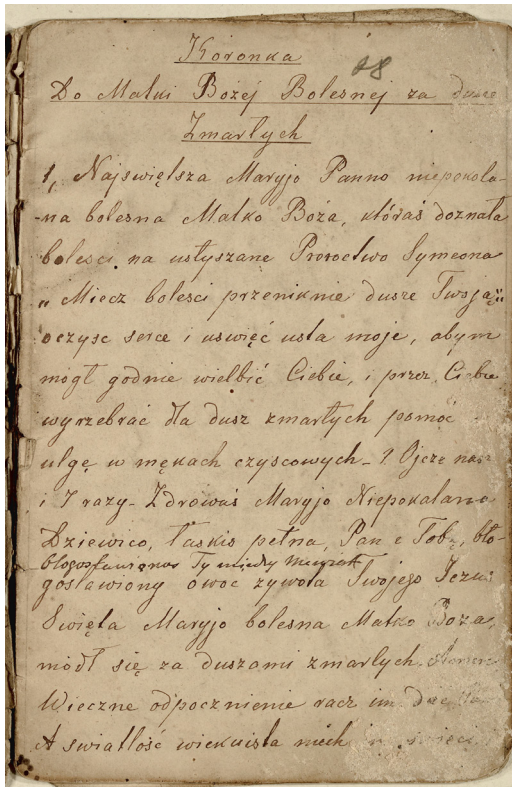 Koronka
28
Do Matki Bożej Bolesnej za dusze
Zmarłych
1, Najswiętsza Maryjo Panno niepokola-
-na bolesna Matko Boża, któraś doznała
bolesci na usłyszane Proroctwo Symeona
„Miecz bolesci przeniknie dusze Twoją"
oczysc serce i uswięć usta moje, abym
mógł godnie wielbić Ciebie, i przez Ciebie
wyrzebrać dla dusz zmarłych pomóc
ulgę w mękach czyscowych - 1 Ojcze nasz
i 7 razy - Zdrowaś Maryjo Niepokalana
Dziewico, łaskis pełna, Pan z Tobą, bło-
błogosławionaś Ty między
gosławiony owoc zywota Twojego Jezus
Swięta Maryjo bolesna Matko Boza,
módl się za duszami zmarłych Amen
Wieczne odpocznienie racz im dac
A swiatłość wiekuista niech